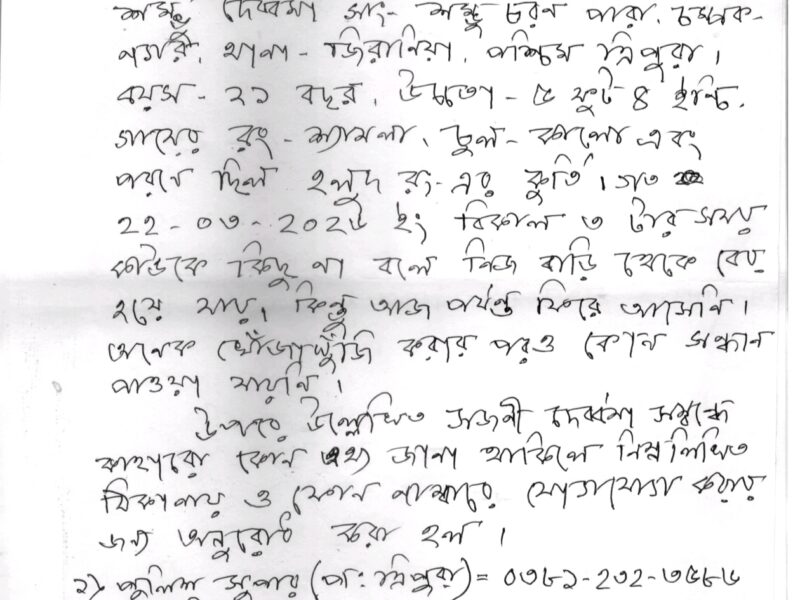 শম্ভু দেববর্মা সাং- শম্ভু চরন পারা, চম্পক-
নগর, থানা - জিরানিয়া, পশ্চিম ত্রিপুরা।
বয়স - ২১ বছর, উচ্চতা - ৫ ফুট ৪ ইঞ্চি,
গায়ের রং - শ্যামলা, চুল - কালো এবং
পরনে ছিল হলুদ রং-এর কুর্তি। গত
২২-০৩-২০২৫ ইং বিকাল ৩ টার সময়
কাউকে কিছু না বলে নিজ বাড়ি থেকে বের
হয়ে যায়, কিন্তু আজ পর্যন্ত ফিরে আসেনি।
অনেক খোঁজাখুঁজি করার পরও কোন সন্ধান
পাওয়া যায়নি।
উপরে উল্লেখিত দেববর্মা সম্বন্ধে
কাহারো কোন তথ্য জানা থাকিলে নিম্নলিখিত
ঠিকানায় ও ফোন নাম্বারে যোগাযোগ করার
জন্য অনুরোধ করা হল।
১) পুলিশ সুপার (প: ত্রিপুরা) = ০৩৮১-২৩২-৩৫৮৬